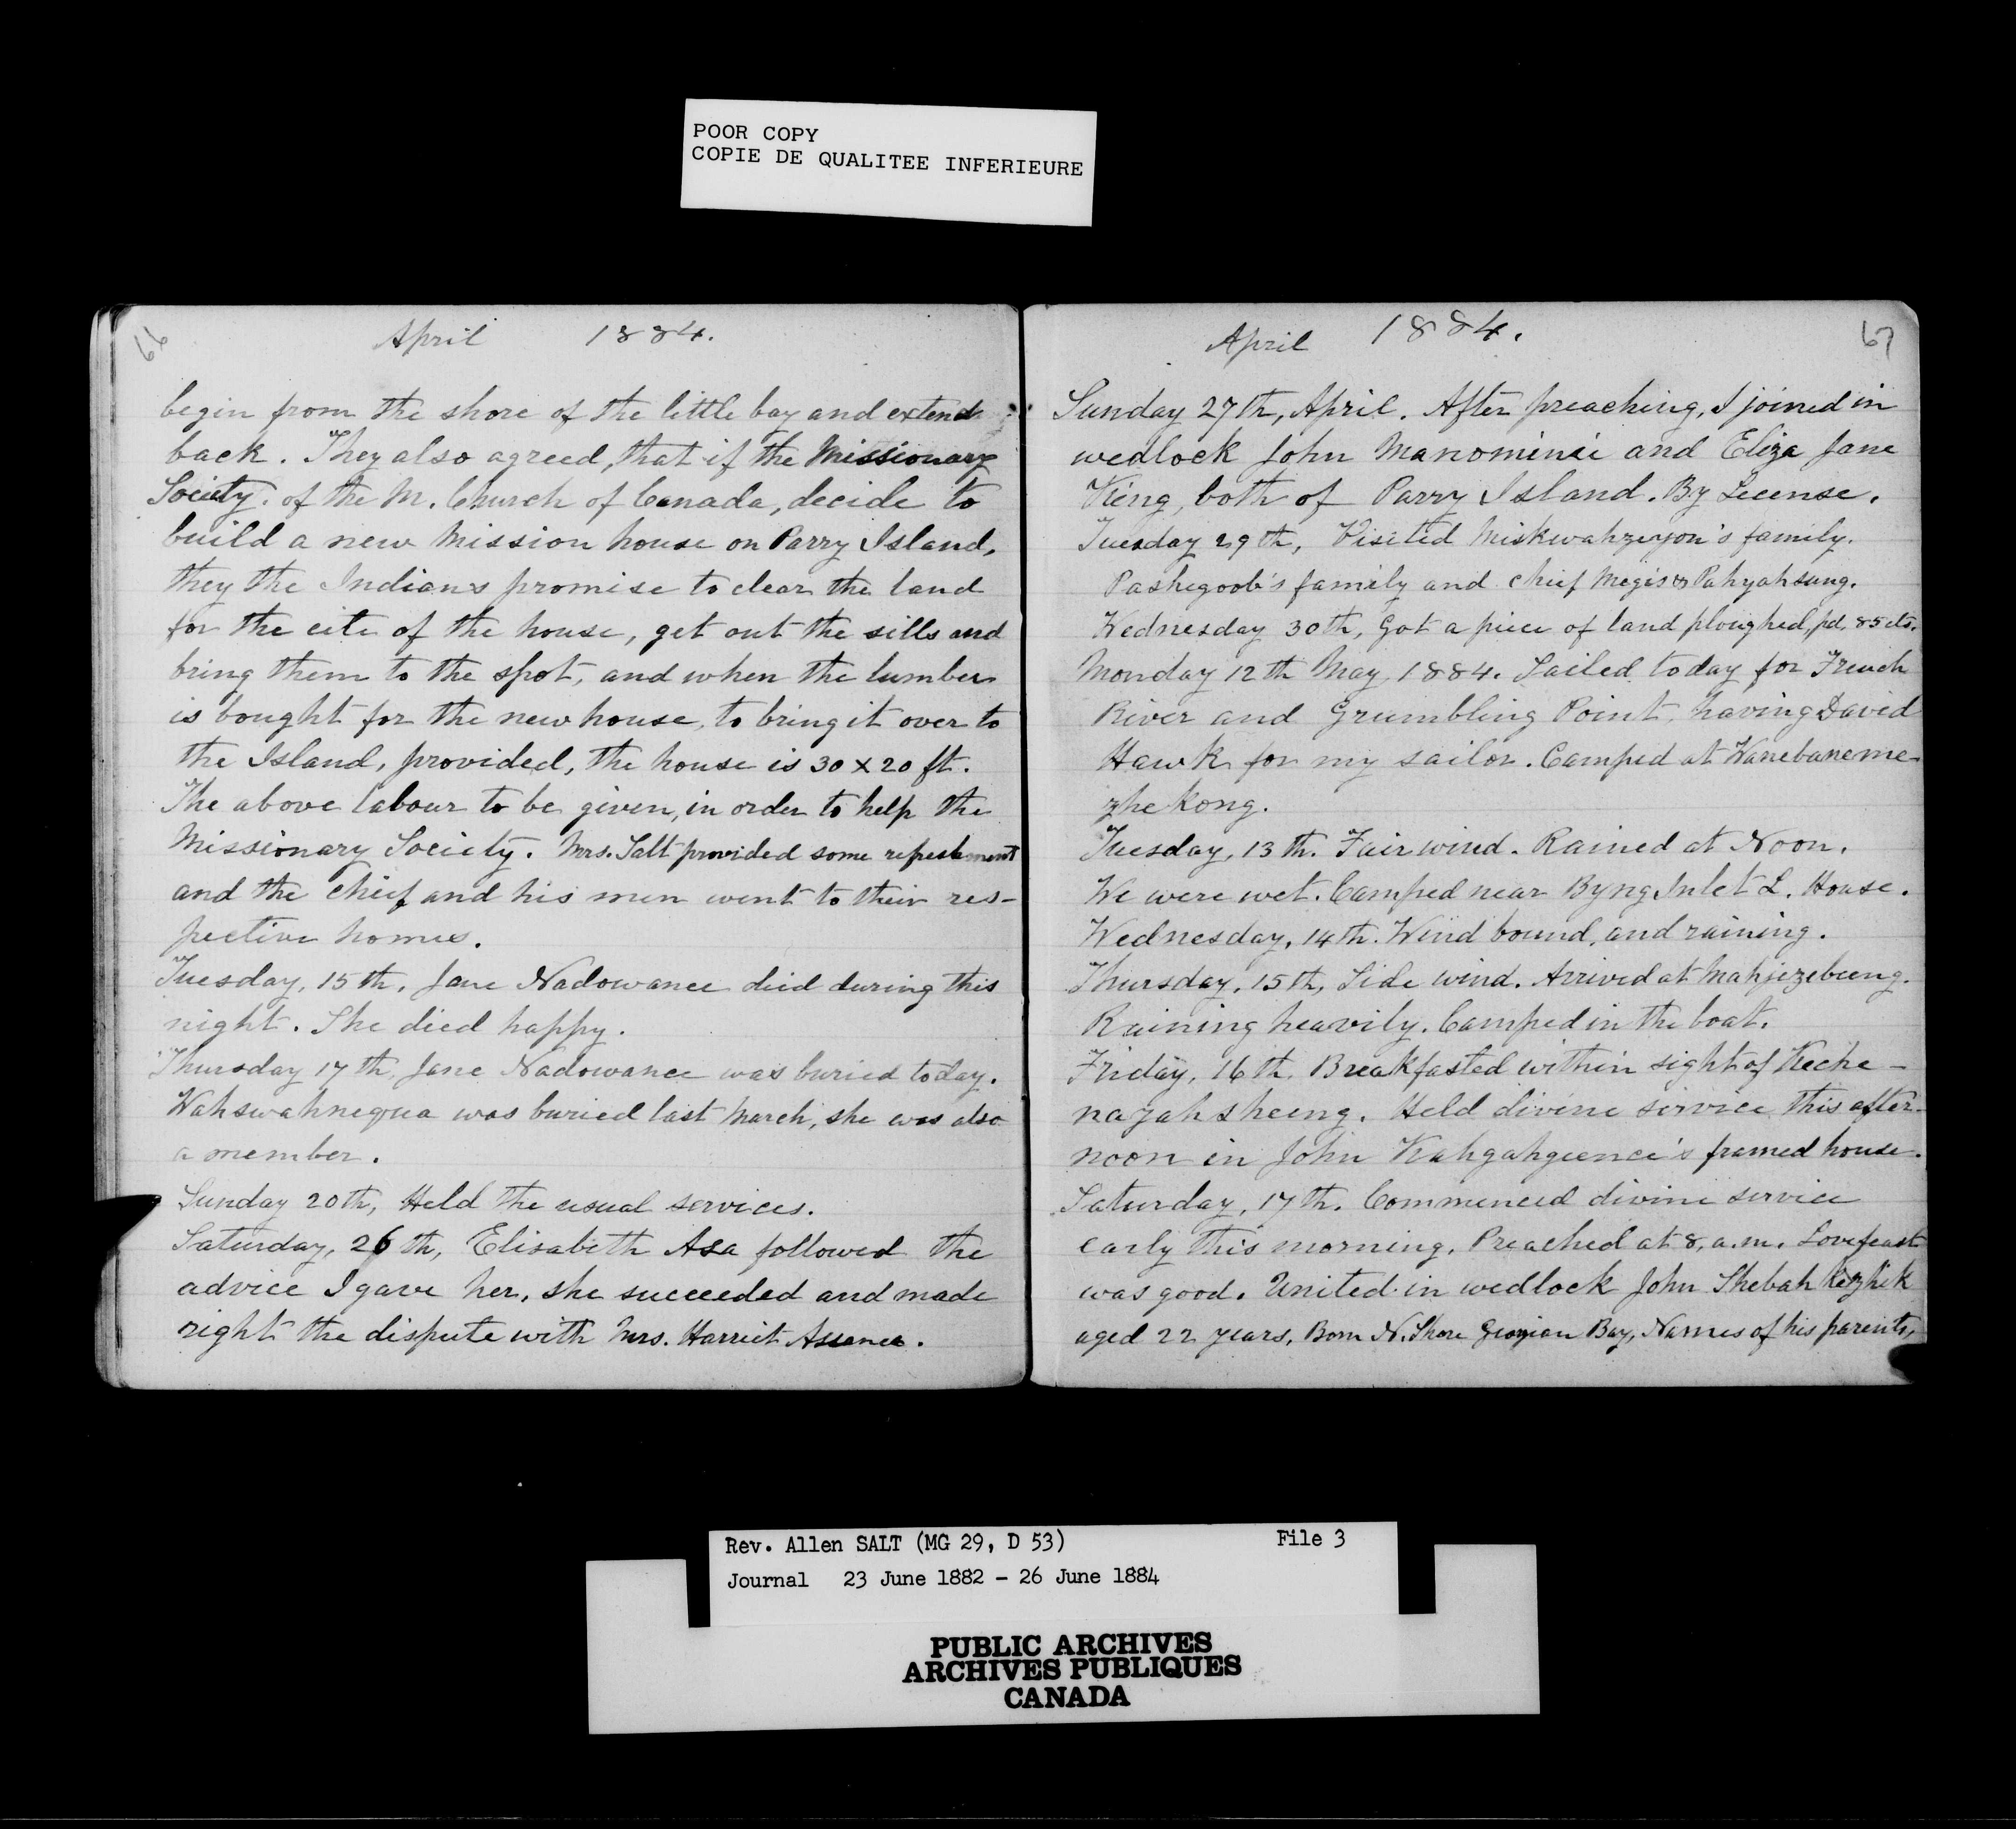 POOR COPY
COPIE DE QUALITEE INFERIEURE
66
April 1884.
begin from the shore of the little bay and extend
back. They also agreed, that if the Missionary
Society. of the M. Church of Canada, decide to
build a new Mission house on Parry Island,
they the Indians promise to clear the land
for the cite of the house, get out the sills and
bring them to the spot, and when the lumber
is bought for the new house, to bring it over to
the Island, provided, the house is 30 x 20 ft.
The above labour to be given, in order to help the
Missionary Society. Mrs. Salt provided some refreshment
and the chief and his men went to their res-
pective homes.
Tuesday, 15th, Jane Nadowance died during this
night. She died happy.
Thursday 17th, Jane Nadowance was buried today.
Wahswahnequa was buried last March, she was also
a member.
Sunday 20th, Held the usual services.
Saturday, 26th, Elisabeth Asa followed the
advice I gave her, she succeeded and made
right the dispute with Mrs. Harriet Assance.
April 1884.
67
Sunday 27th, April. After preaching, I joined in
wedlock John Manominei and Eliza Jane
King, both of Parry Island. By License.
Tuesday 29th, Visited Miskwahzeyon's family.
Pashegoob's family and chief Megis & Pahyahsung.
Wednesday 30th, Got a piece of land ploughed, pd. 85 cts.
Monday 12th May, 1884. Sailed today for French
River and Grumbling Point, having David
Hawk for my sailor. Camped at Wanebaneme-
zhekong.
Tuesday, 13th. Fair wind. Rained at Noon.
We were wet. Camped near Byng Inlet L. House.
Wednesday, 14th. Wind bound, and raining.
Thursday, 15th, Side wind. Arrived at Mahjezebeeng.
Raining heavily. Camped in the boat.
Friday, 16th, Breakfasted within sight of Keche-
nayahsheeng. Held divine service this after-
noon in John Kahgahgeence's framed house.
Saturday, 17th. Commenced divine service
early this morning. Preached at 8, a.m. Lovefeast
was good. United in wedlock John Shebah Kezhik
aged 22 years, Born N. Shore Georgian Bay, Names of his parents,
Rev. Allen SALT (MG 29, D 53) File 3
Journal 23 June 1882 - 26 June 1884
PUBLIC ARCHIVES
ARCHIVES PUBLIQUES
CANADA